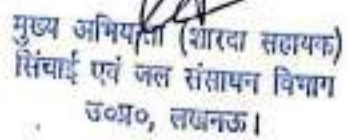 मुख्य अभियन्ता (शारदा सहायक)
सिंचाई एवं जल संसाधन विभाग
उ०प्र०, लखनऊ।